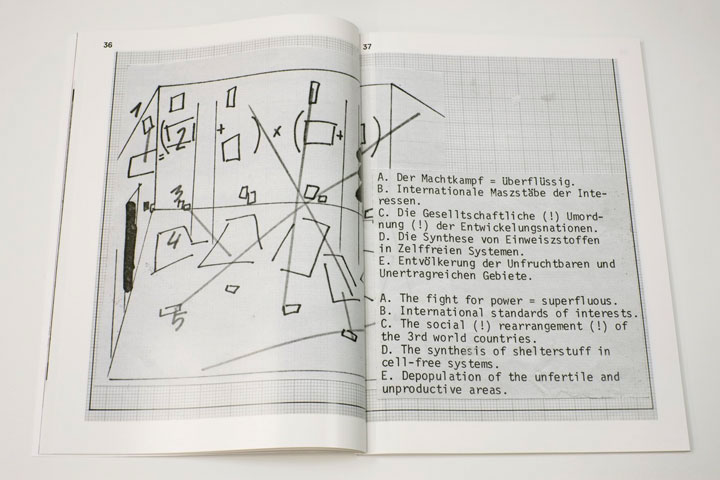 36
37
1
2
+
x
+
=
3
4
5
A. Der Machtkampf = überflüssig.
B. Internationale Maszstäbe der Inte-
ressen.
C. Die Geselltschaftliche (!) Umord-
nung (!) der Entwickelungsnationen.
D. Die Synthese von Einweiszstoffen
in Zelffreien Systemen.
E. Entvölkerung der Unfruchtbaren und
Unertragreichen Gebiete.
A. The fight for power = superfluous.
B. International standards of interests.
C. The social (!) rearrangement (!) of
the 3rd world countries.
D. The synthesis of shelterstuff in
cell-free systems.
E. Depopulation of the unfertile and
unproductive areas.